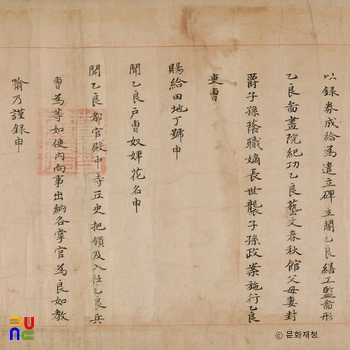 以錄券成給爲遣立碑主閣乙良繕工監啚形
乙良啚畫院紀功乙良藝文春秋館父母妻封
爵子孫蔭職嫡長世襲子孫政案施行乙良
吏曹
賜給田地丁號申
聞乙良戶曹奴婢花名申
聞乙良都官殿中寺丘史把領及入仕乙良兵
曹爲等如使內向事出納各掌官爲良如教
喻乃謹錄申
문화재청.